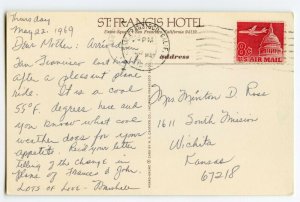 Thursday
May 22, 1969
ST. FRANCIS HOTEL
Union Square · San Francisco, California 94119
Dear Mother: Arrived in
San Francisco last night
after a pleasant plane
ride. It is a cool
55°F. degrees here and
you know what cool
weather does for your
appetite. Read your letter
telling of the change in
plane of Frances & John.
LOTS OF LOVE -
PM
MAY
address
8¢
U.S. AIR MAIL
Mrs Minton D Rose
1611 South Mission
Wichita
Kansas
67218